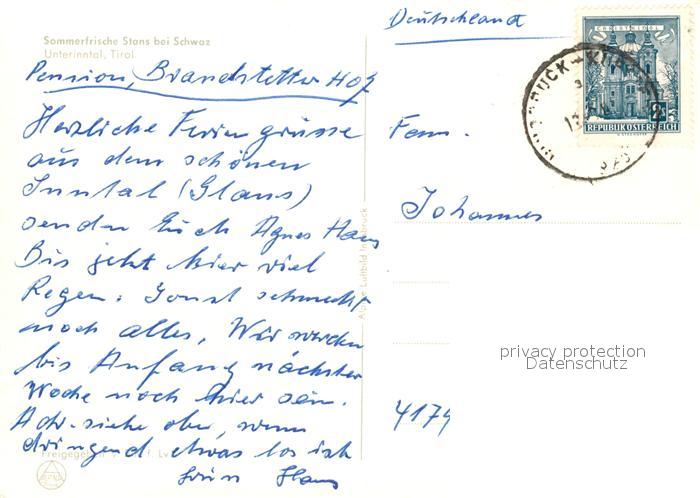 Sommerfrische Stans bei Schwaz
Unterinntal, Tirol
Pension, Brandstetter Hof
Herzliche Feriengrüsse
aus dem schönen
Inntal (Stans)
senden Euch Agnes Hans
Bis jetzt hier viel
Regen. Sonst schmeckt
noch alles, Wir werden
bis Anfang nächster
Woche noch hier sein.
Adr. siehe oben, wenn
dringend etwas los ist
Hans
Freigegeben
Deutschland
REPUBLIK ÖSTERREICH
Fam.
Johannes
privacy protection
Datenschutz
4174
Alpine Luftbild Innsbruck